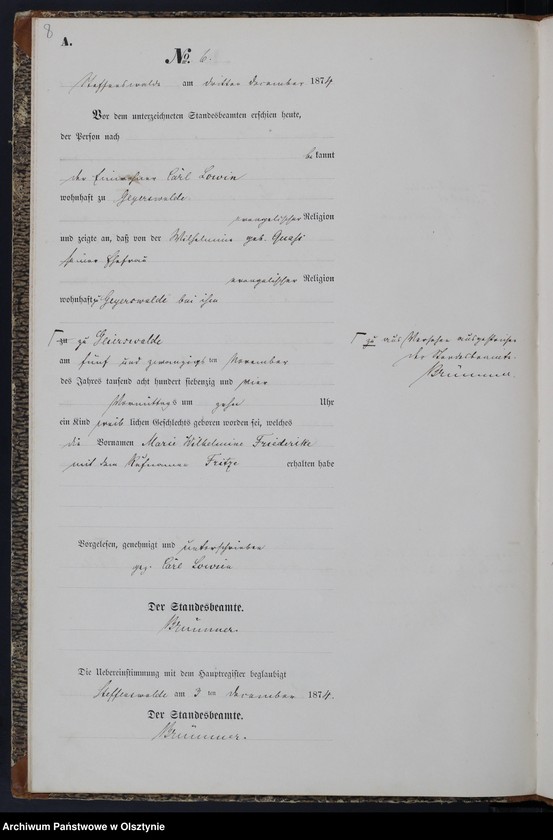 8
A.
No. 6.
Steffenswalde am dritten December 1874
Vor dem unterzeichneten Standesbeamten erschien heute,
der Person nach
bekannt
der Einwohner Carl Lowin
wohnhaft zu Geyerswalde
evangelischer Religion
und zeigte an, daß von der Wilhelmine geb.
seiner Ehefrau
evangelischer Religion
wohnhaft zu Geyerswalde bei ihm
zu zu Geierswalde
am fünf und zwanzigsten November
des Jahres tausend acht hundert siebenzig und vier
Vormittags um zehn Uhr
ein Kind weiblichen Geschlechts geboren worden sei, welches
die Vornamen Marie Wilhelmine Friederike
mit dem Rufnamen Fritze erhalten habe
zu aus Versehen ausgestrichen
der Standesbeamte.
Brümmer.
Vorgelesen, genehmigt und unterschrieben
gez. Carl Lowin
Der Standesbeamte.
Brümmer.
Die Uebereinstimmung mit dem Hauptregister beglaubigt
Steffenswalde am 3 ten December 1874.
Der Standesbeamte.
Brümmer.
Archiwum Państwowe w Olsztynie